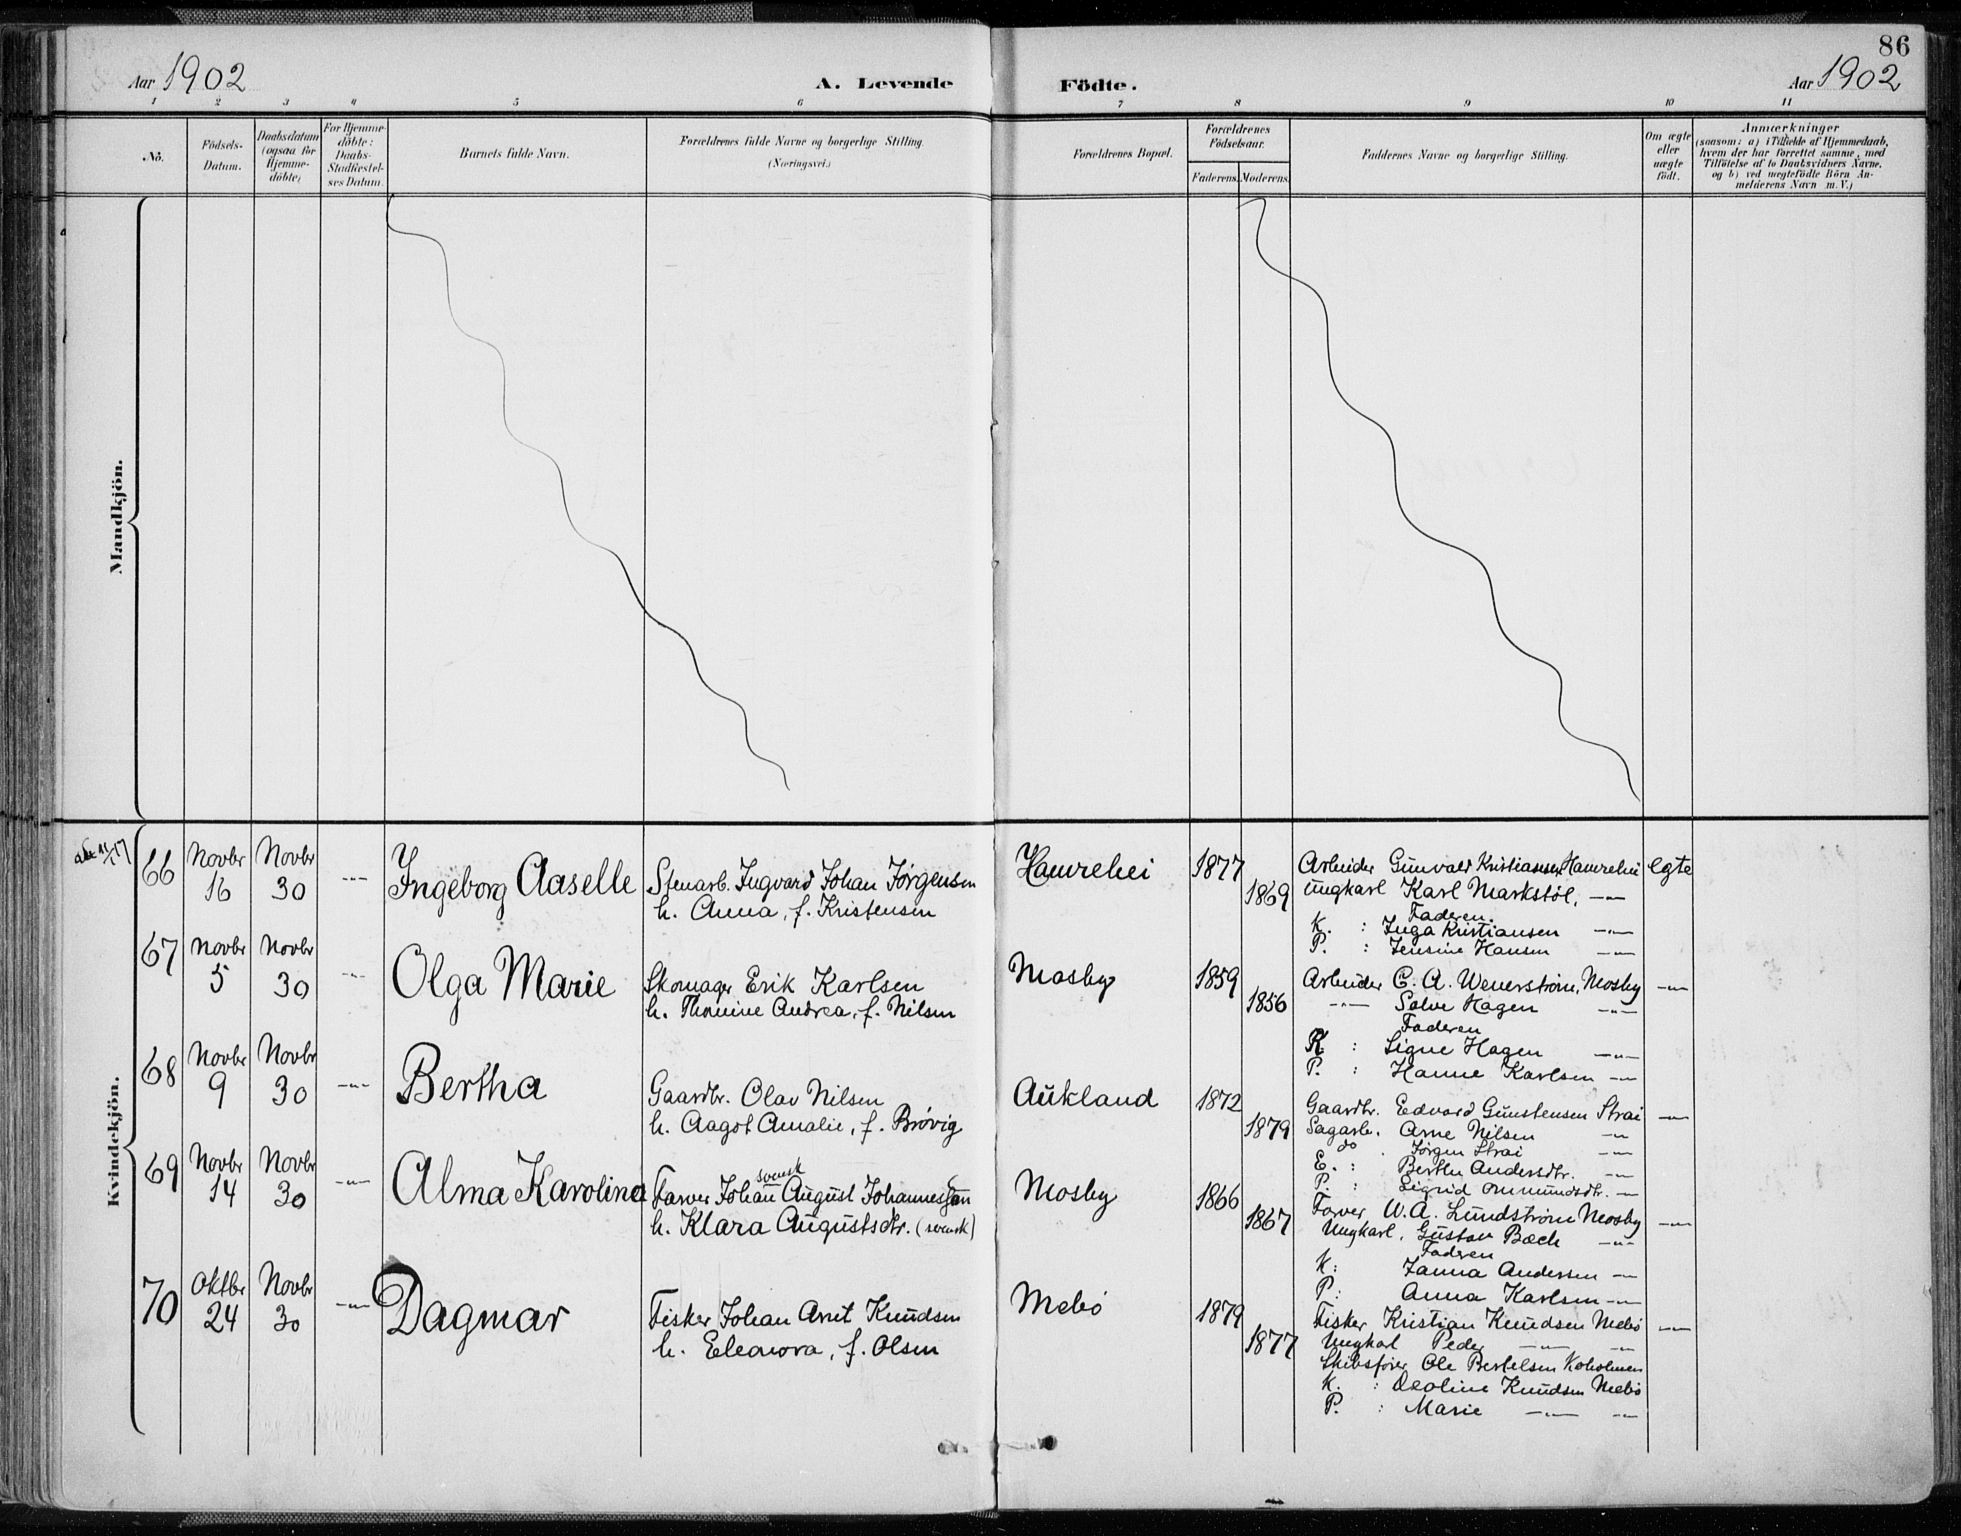 86
Aar 1902
A. Levende Födte.
Aar 1902
1 2 3 4 5 6 7 8 9 10 11
No.
Födsels-Datum.
Daabsdatum (ogsaa for Hjemme-döbte)
For Hjemme-döbte: Daabs-Stadfæstel-ses Datum.
Barnets fulde Navn.
Forældrenes fulde Navne og borgerlige Stilling.
(Næringsvei.)
Forældrenes Bopæl.
Forældrenes Födselsaar.
Faderens. Moderens.
Faddernes Navne og borgerlige Stilling.
Om ægte eller uægte födt.
Anmærkninger
(saasom: a) i Tilfælde af Hjemmedaab,
hvem der har forrettet samme, med
Tilföielse af to Daabsvidners Navne,
og b) ved uægtefödte Börn An-
melderens Navn m. V.)
Mandkjön.
Kvindekjön.
66 Novbr 16 Novbr 30 -"- Ingeborg Aaselle
Stenarb. Ingvard Johan Jørgensen
h. Anna, f. Kristensen
Hamrehei 1877 1869
Arbeider Gunvald Kristiansen Hamrehei egte
Ungkarl Karl Markstøl, -"-
Faderen.
K. : Inga Kristiansen -"-
P. : Jensine Hansen -"-
67 Novbr 5 Novbr 30 -"- Olga Marie
Skomager Erik Karlsen
h. Thomine Andrea, f. Nilsen
Mosby 1859 1856
Arbeider C. A. Wenerstrøm, Mosby -"-
-"- Salve Hagen -"-
Faderen
K. : Signe Hagen -"-
P. : Hanne Karlsen -"-
68 Novbr 9 Novbr 30 -"- Bertha
Gaardbr. Olav Nilsen
h. Aagot Amalie, f. Brøvig
Aukland 1872 1879
Gaardbr. Edvard Gunstensen Strai -"-
Sagarb. Arne Nilsen -"-
do . Jørgen Strai -"-
E. : Berthe Andersdtr. -"-
P. : Sigrid Ommundsdtr. -"-
69 Novbr 14 Novbr 30 -"- Alma Karolina
svensk
Farver Johan August Johannesson
h. Klara Augustsdtr. (svensk)
Mosby 1866 1867
Farver W. A. Lundstrøm Mosby -"-
Ungkarl, Gustav Bæch -"-
Faderen
K: Janna Andersen -"-
P: Anna Karlsen -"-
70 Oktbr 24 Novbr 30 -"- Dagmar
Fisker Johan Arnt Knudsen
h. Eleonora, f. Olsen
Mebø 1879 1877
Fisker Kristian Knudsen Mebø -"-
Ungkarl Peder -"- -"-
Skibsfører Ole Bertelsen Koholmen
K. : Deoline Knudsen Mebø
P. : Marie -"- -"-